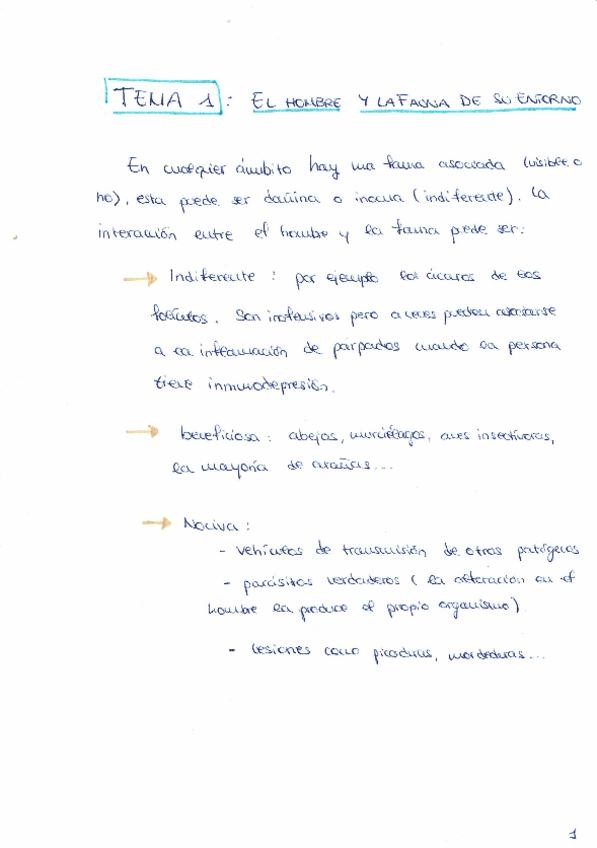 TEMA 1: EL HOMBRE Y LA FAUNA DE SU ENTORNO
En cualquier ámbito hay una fauna asociada (visible o
no), esta puede ser dañina o inocua (indiferente). La
interacción entre el hombre y la fauna puede ser:
→ Indiferente : por ejemplo los ácaros de los
folículos. Son inofensivos pero a veces pueden asociarse
a la inflamación de párpados cuando la persona
tiene inmunodepresión.
→ beneficiosa : abejas, murciélagos, aves insectívoras,
la mayoría de arañas...
→ Nociva :
- vehículos de transmisión de otros patógenos
- parásitos verdaderos ( la alteración en el
hombre la produce el propio organismo)
- lesiones como picaduras, mordeduras...
1